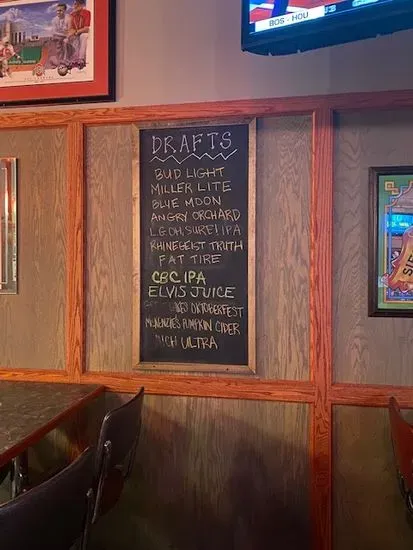 BOS - HOU
DRAFTS
BUD LIGHT
MILLER LITE
BLUE MOON
ANGRY ORCHARD
L.G. OH, SURE! IPA
RHINEGEIST TRUTH
FAT TIRE
CBC IPA
ELVIS JUICE
OKTOBERFEST
MCKENZIE'S PUMPKIN CIDER
MICH ULTRA